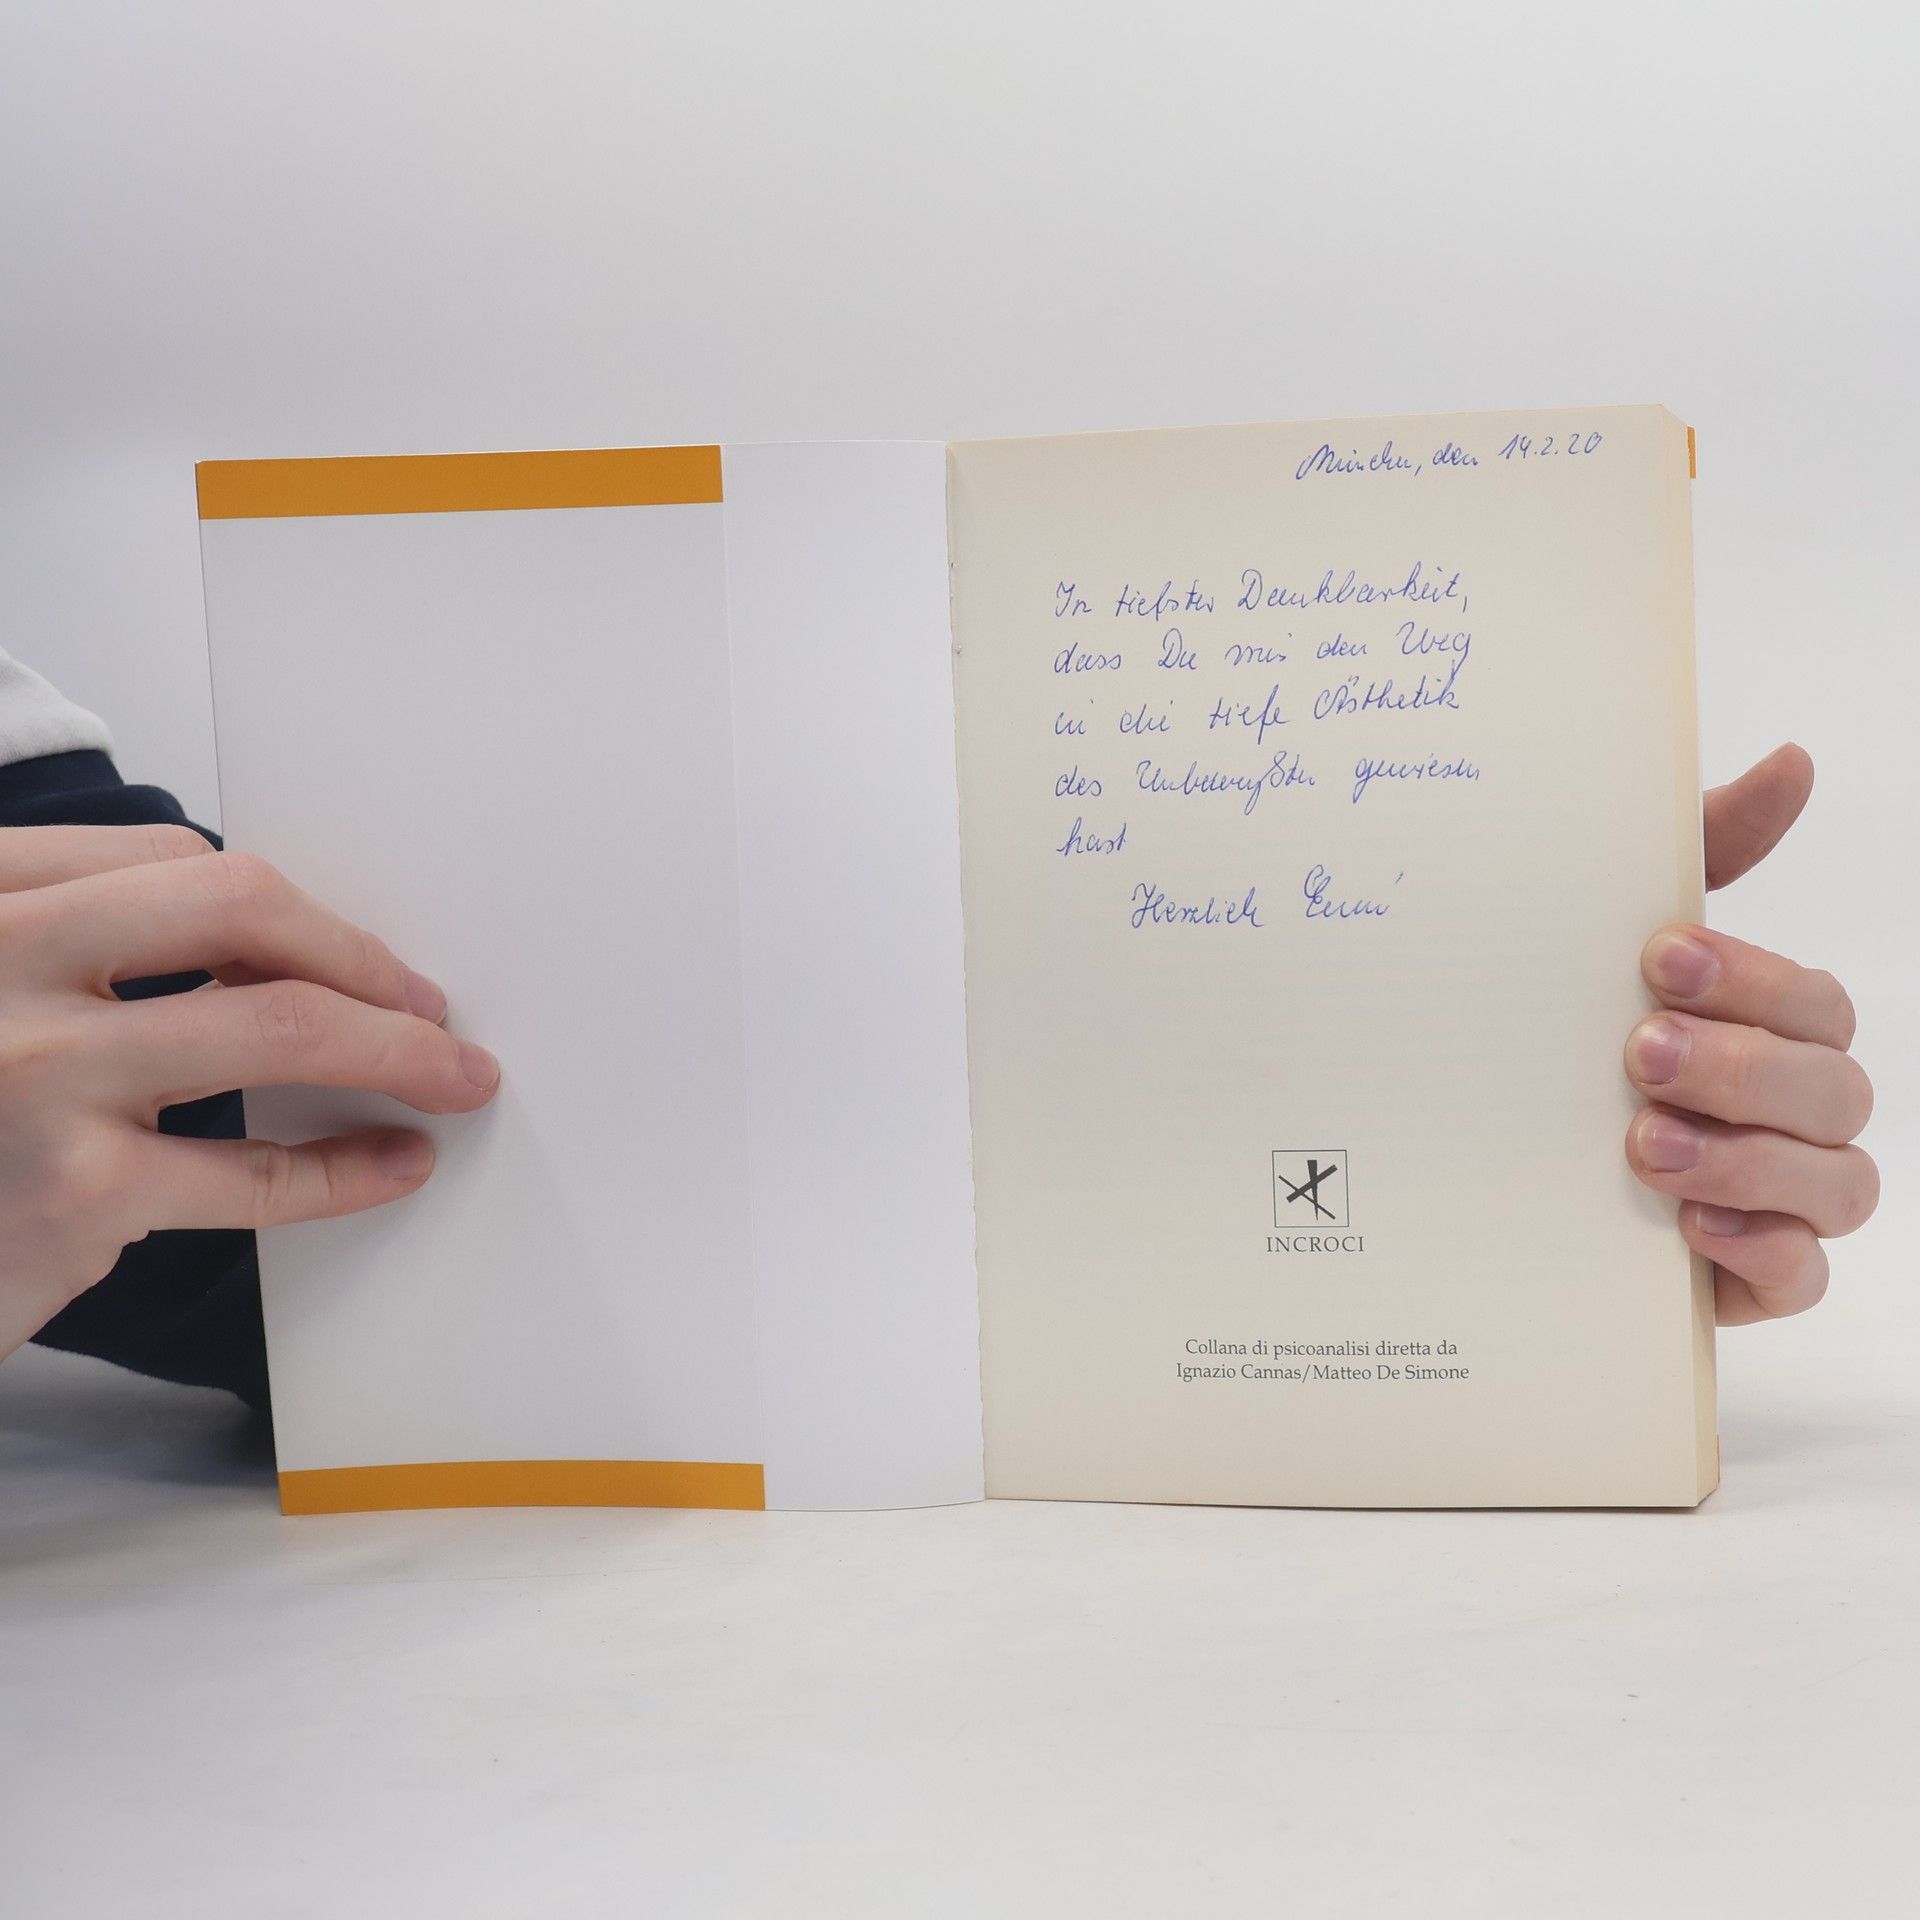 München, den 14.2.20
In tiefster Dankbarkeit,
dass Du mir den Weg
in die tiefe Ästhetik
des Unbewußten gewiesen
hast
Herzlich
INCROCI
Collana di psicoanalisi diretta da
Ignazio Cannas/Matteo De Simone